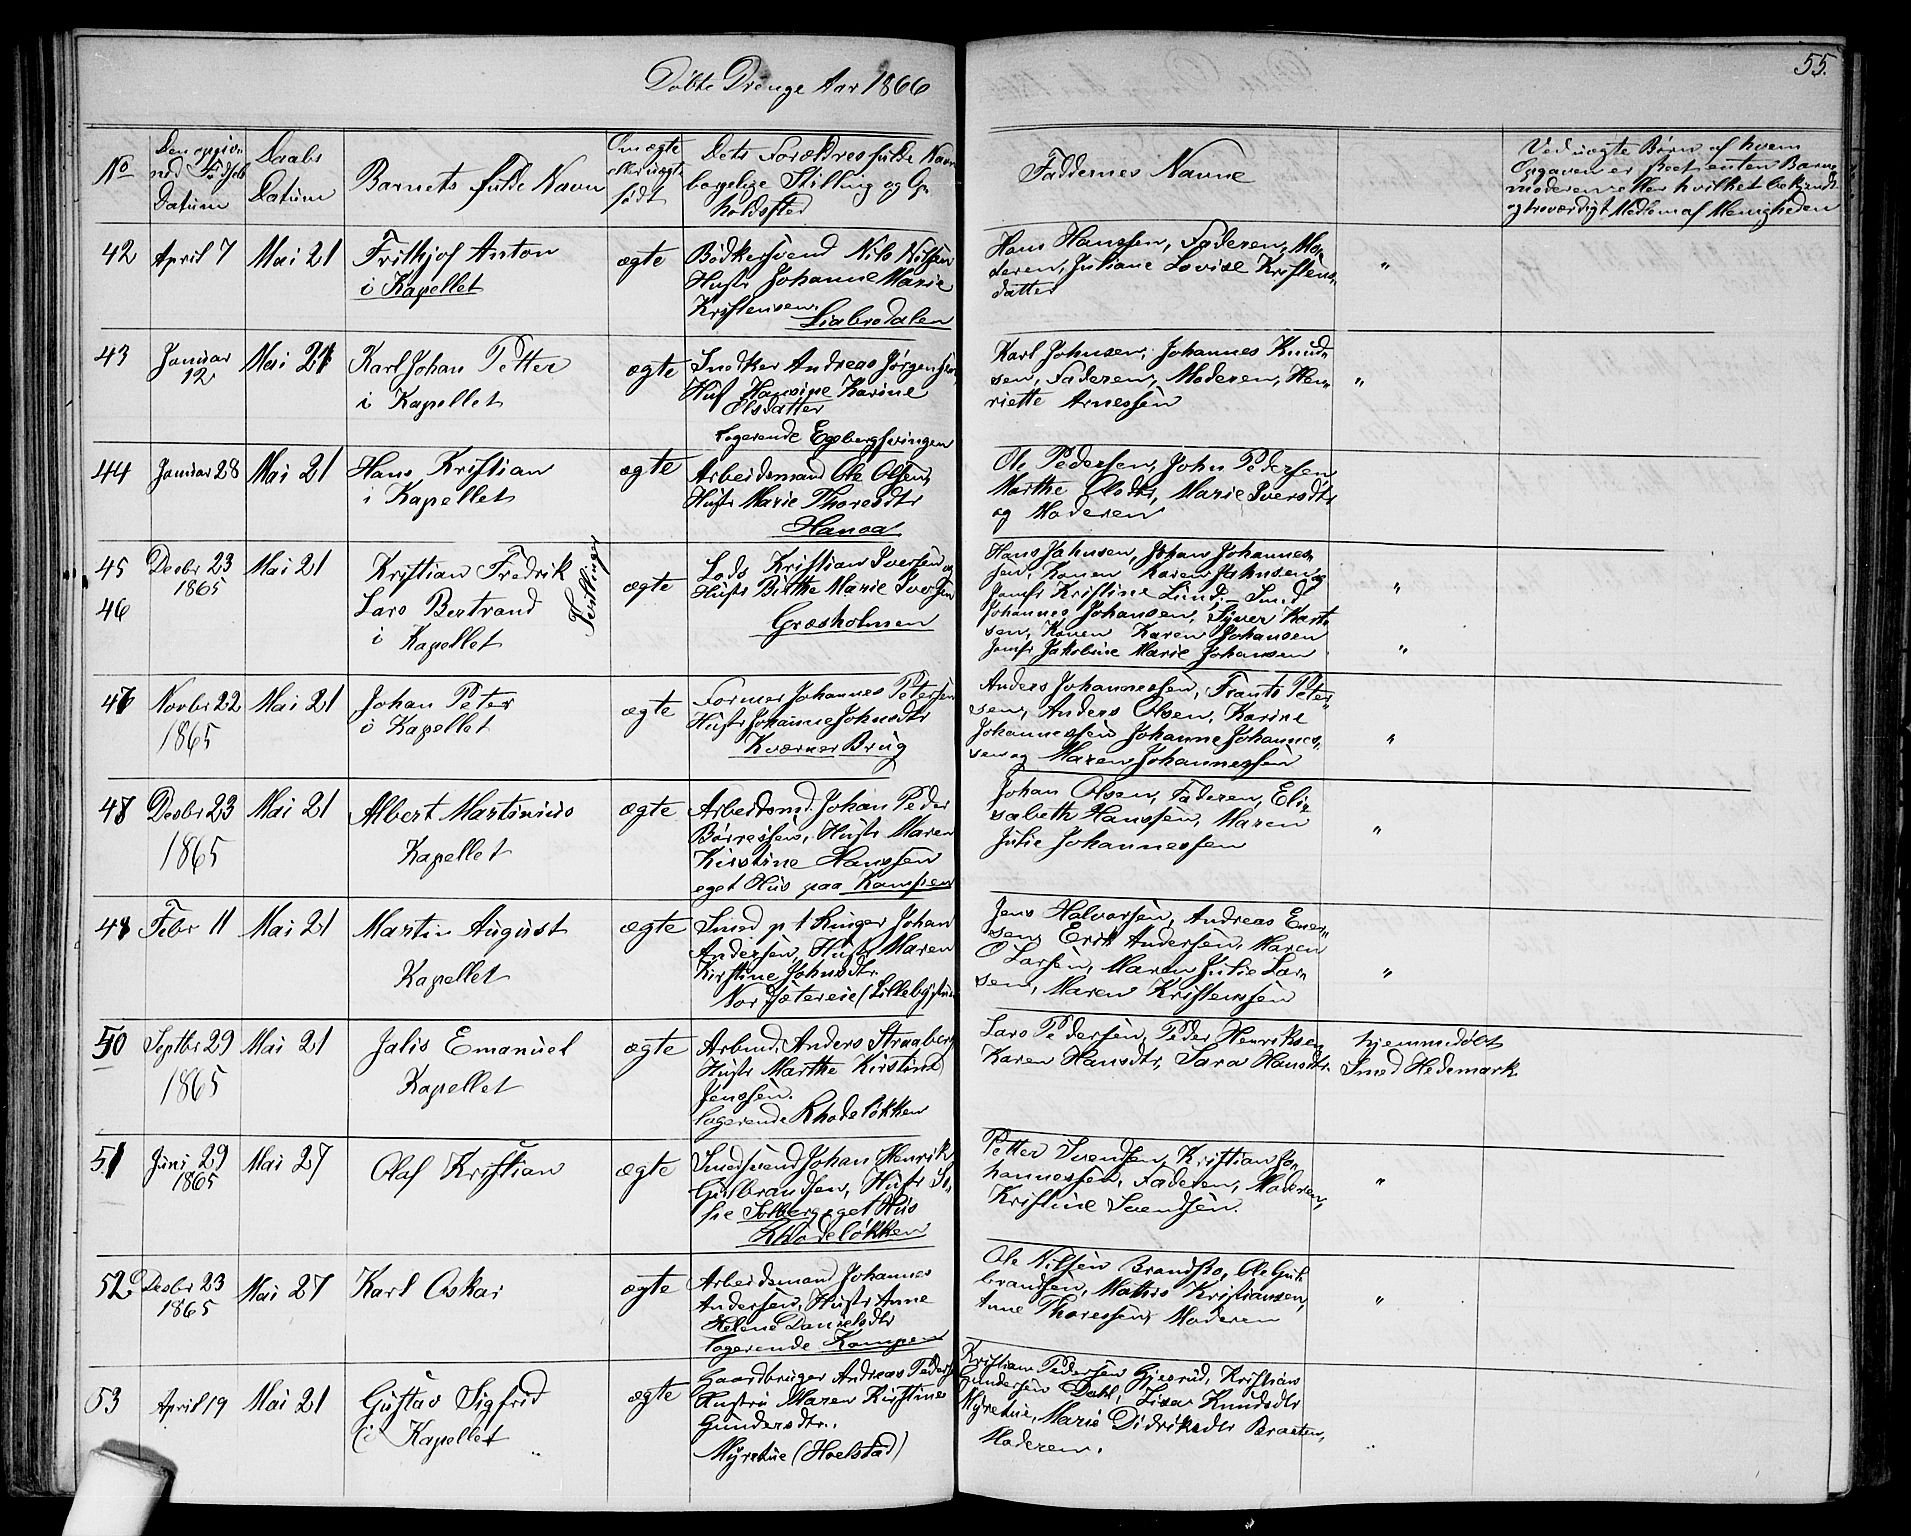 Döbte Drenge Aar 1866
55.
No
Den opgiv-
ned Fødsels
Datum
Daabs
Datum
Barnets fulde Navn
Om ægte
eller uægte
født
Dets Forældres fulde Navn
borgelige Stilling og Op-
holdssted
Faddernes Navne
Ved uægte Børn af hvem
Opgaven er skeet enten Barne-
moderen eller hvilket bekjendt
og troværdigt Medlem af Menigheden
42 April 7 Mai 21 Frithjof Anton
i Kapellet
ægte
Bödkersvend Nils Nilsen
Hustr Johanne Marie
Kristensen.
Liabrodalen
Hans Hanssen, Faderen, Mo-
deren, Juliane Lovise Kristens-
datter
"
43 Januar
12
Mai 21 Karl Johan Petter
i Kapellet
ægte
Snedker Andreas Jörgensen,
Hus Hansine Karine
Elsdatter
logerende Egebergsvingen
Karl Johnsen, Johannes Knud-
sen, Faderen, Moderen, Hen-
riette Arnessen
"
44 Januar 28 Mai 21 Hans Kristian
i Kapellet
ægte
Arbeidsmand Ole Olsen,
Hustr Marie Thoresdtr
Hanoa
Ole Pedersen, John Pedersen,
Marthe Olsdtr, Marie Iversdtr
og Moderen
45
46
Desbr 23
1865
Mai 21
Kristian Fredrik
Lars Bertrand
i Kapellet
Tvillinger
ægte
Lods Kristian Iversen og
Hustr Birthe Marie Iversen
Græsholmen
Hans Jahnsen, Johan Johannes-
sen, Konen Karen Jahnsen og
Jomfr Kristine Lund, - Smed
Johannes Johansen, Syver Karl-
sen, Konen Karen Johansen
Jomfr Jakobine Marie Johansen
"
"
47 Novbr 22
1865
Mai 21 Johan Peter
i Kapellet
ægte
Former Johannes Petersen
Hustr Johanne Johnsdtr
Kværner Brug
Anders Johannessen, Frants Peter-
sen, Anders Olsen, Karine
Johannessen Johanne Johannes-
sen og Maren Johannessen
"
48 Desbr 23
1865
Mai 21 Albert Martinius
Kapellet
ægte
Arbeidsmd. Johan Peder
Börresen, Hustr Maren
Kirstine Hanssen
eget Hus paa Kampen
Johan Olsen, Faderen, Eli-
sabeth Hanssen, Maren
Julie Johannessen
"
Febr 11 Mai 21 Martin August
Kapellet
ægte
Smed p t Ringer Johan
Andersen, Hustr Maren
Kirstine Johnsdtr.
Jens Halvorsen, Andreas Ener-
sen, Erik Andersen, Maren
O Larsen, Maren Julie Lar-
sen, Maren Kristenssen
"
50 Septbr 29
1865
Mai 21 Jalis Emanuel
Kapellet
ægte
Arbmd. Anders Straaberg
Hustr Marthe Kirstine
Jenssen.
logerende Rhodeløkken
Lars Pedersen, Peder Henriksen,
Karen Hansdtr, Sara Hansdtr.
hjemmedöbt
Smed Hedemark
51 Juni 29
1865
Mai 27 Olaf Kristian
ægte
Smedsvend Johan Henrik
Gulbrandsen, Hustr So-
fie Solberg, eget Hus
Rhodeløkken
Petter Svendsen, Kristian Jo-
hannessen, Faderen, Moderen,
Kristine Svendsen.
"
52 Desbr 23
1865
Mai 27 Karl Oskar
ægte
Arbeidsmand Johannes
Andersen, Hustr Anne
Helene Danielsdtr
logerende Kampen
Ole Nilsen Brandbo, Ole Gul-
brandsen, Mathis Kristiansen,
Anne Thoressen, Moderen
"
53 April 19 Mai 21 Gustav Sigfrid
(i Kapellet
ægte
Gaardbruger Andreas Peders
Hustru Maren Kirstine
Gundersdtr.
Myrebie (Hoelstad)
Kristian Pedersen Gjesrud, Kristian
Gundersen Dahl, Lisa Knudsdtr
Marie Didriksdtr Braaten,
Moderen.
"